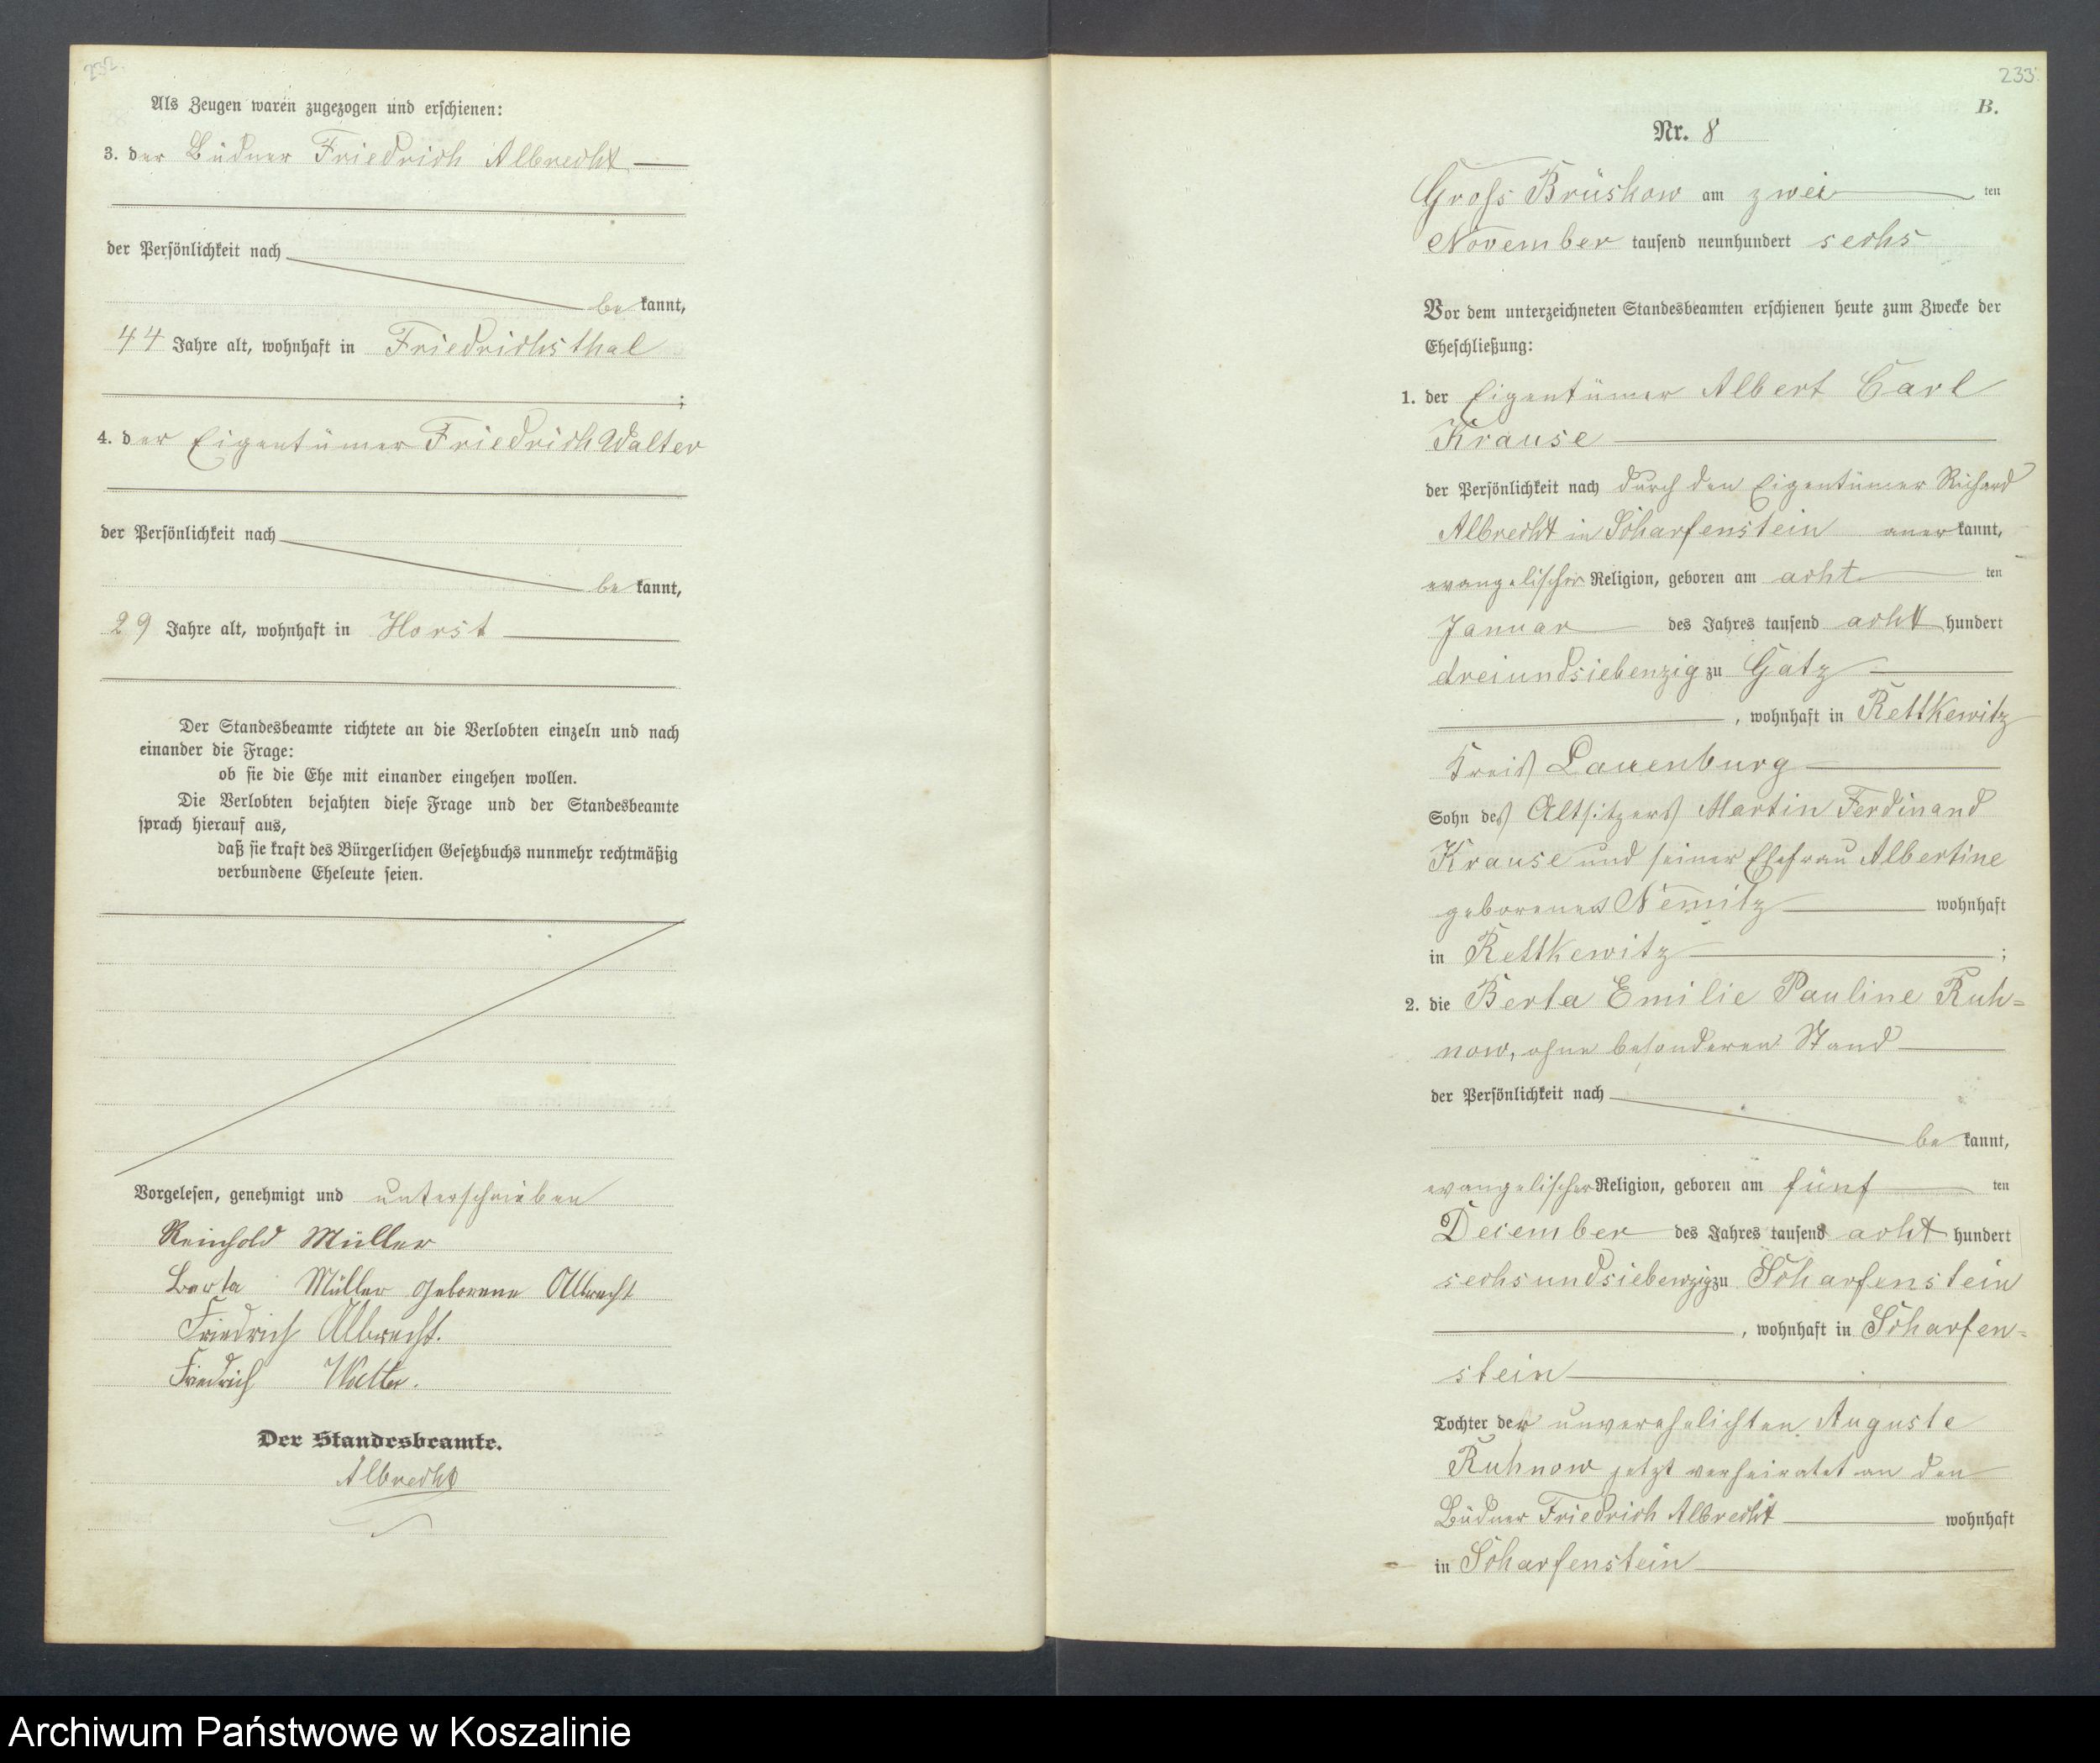 232.
Als Zeugen waren zugezogen und erschienen:
3. der Büdner Friedrich Albrecht
der Persönlichkeit nach
be kannt,
44 Jahre alt, wohnhaft in Friedrichsthal
;
4. der Eigentümer Friedrich Walter
der Persönlichkeit nach
be kannt,
29 Jahre alt, wohnhaft in Horst
Der Standesbeamte richtete an die Verlobten einzeln und nach
einander die Frage:
ob sie die Ehe mit einander eingehen wollen.
Die Verlobten bejahten diese Frage und der Standesbeamte
sprach hierauf aus,
daß sie kraft des Bürgerlichen Gesetzbuchs nunmehr rechtmäßig
verbundene Eheleute seien.
Vorgelesen, genehmigt und unterschrieben
Reinhold Müller
Berta Müller geborene Albrecht
Friedrich Albrecht.
Friedrich Walter.
Der Standesbeamte.
Albrecht
233.
B.
Nr. 8
Gross Brüskow am zwei ten
November tausend neunhundert sechs
Vor dem unterzeichneten Standesbeamten erschienen heute zum Zwecke der
Eheschließung:
1. der Eigentümer Albert Carl
Krause
der Persönlichkeit nach durch den Eigentümer Richard
Albrecht in Scharfenstein aner kannt,
evangelischer Religion, geboren am acht ten
Januar des Jahres tausend acht hundert
dreiundsiebenzig zu Gatz
, wohnhaft in Rettkewitz
Kreis Lauenburg
Sohn des Altsitzers Martin Ferdinand
Krause und seiner Ehefrau Albertine
geborenen Nemitz wohnhaft
in Rettkewitz ;
2. die Berta Emilie Pauline Ruh=
now, ohne besonderen Stand
der Persönlichkeit nach
be kannt,
evangelischer Religion, geboren am fünf ten
Decemember des Jahres tausend acht hundert
sechsundsiebenzig zu Scharfenstein
, wohnhaft in Scharfen=
stein
Tochter der unverehelichten Auguste
Ruhnow jetzt verheiratet an den
Büdner Friedrich Albrecht wohnhaft
in Scharfenstein
Archiwum Państwowe w Koszalinie